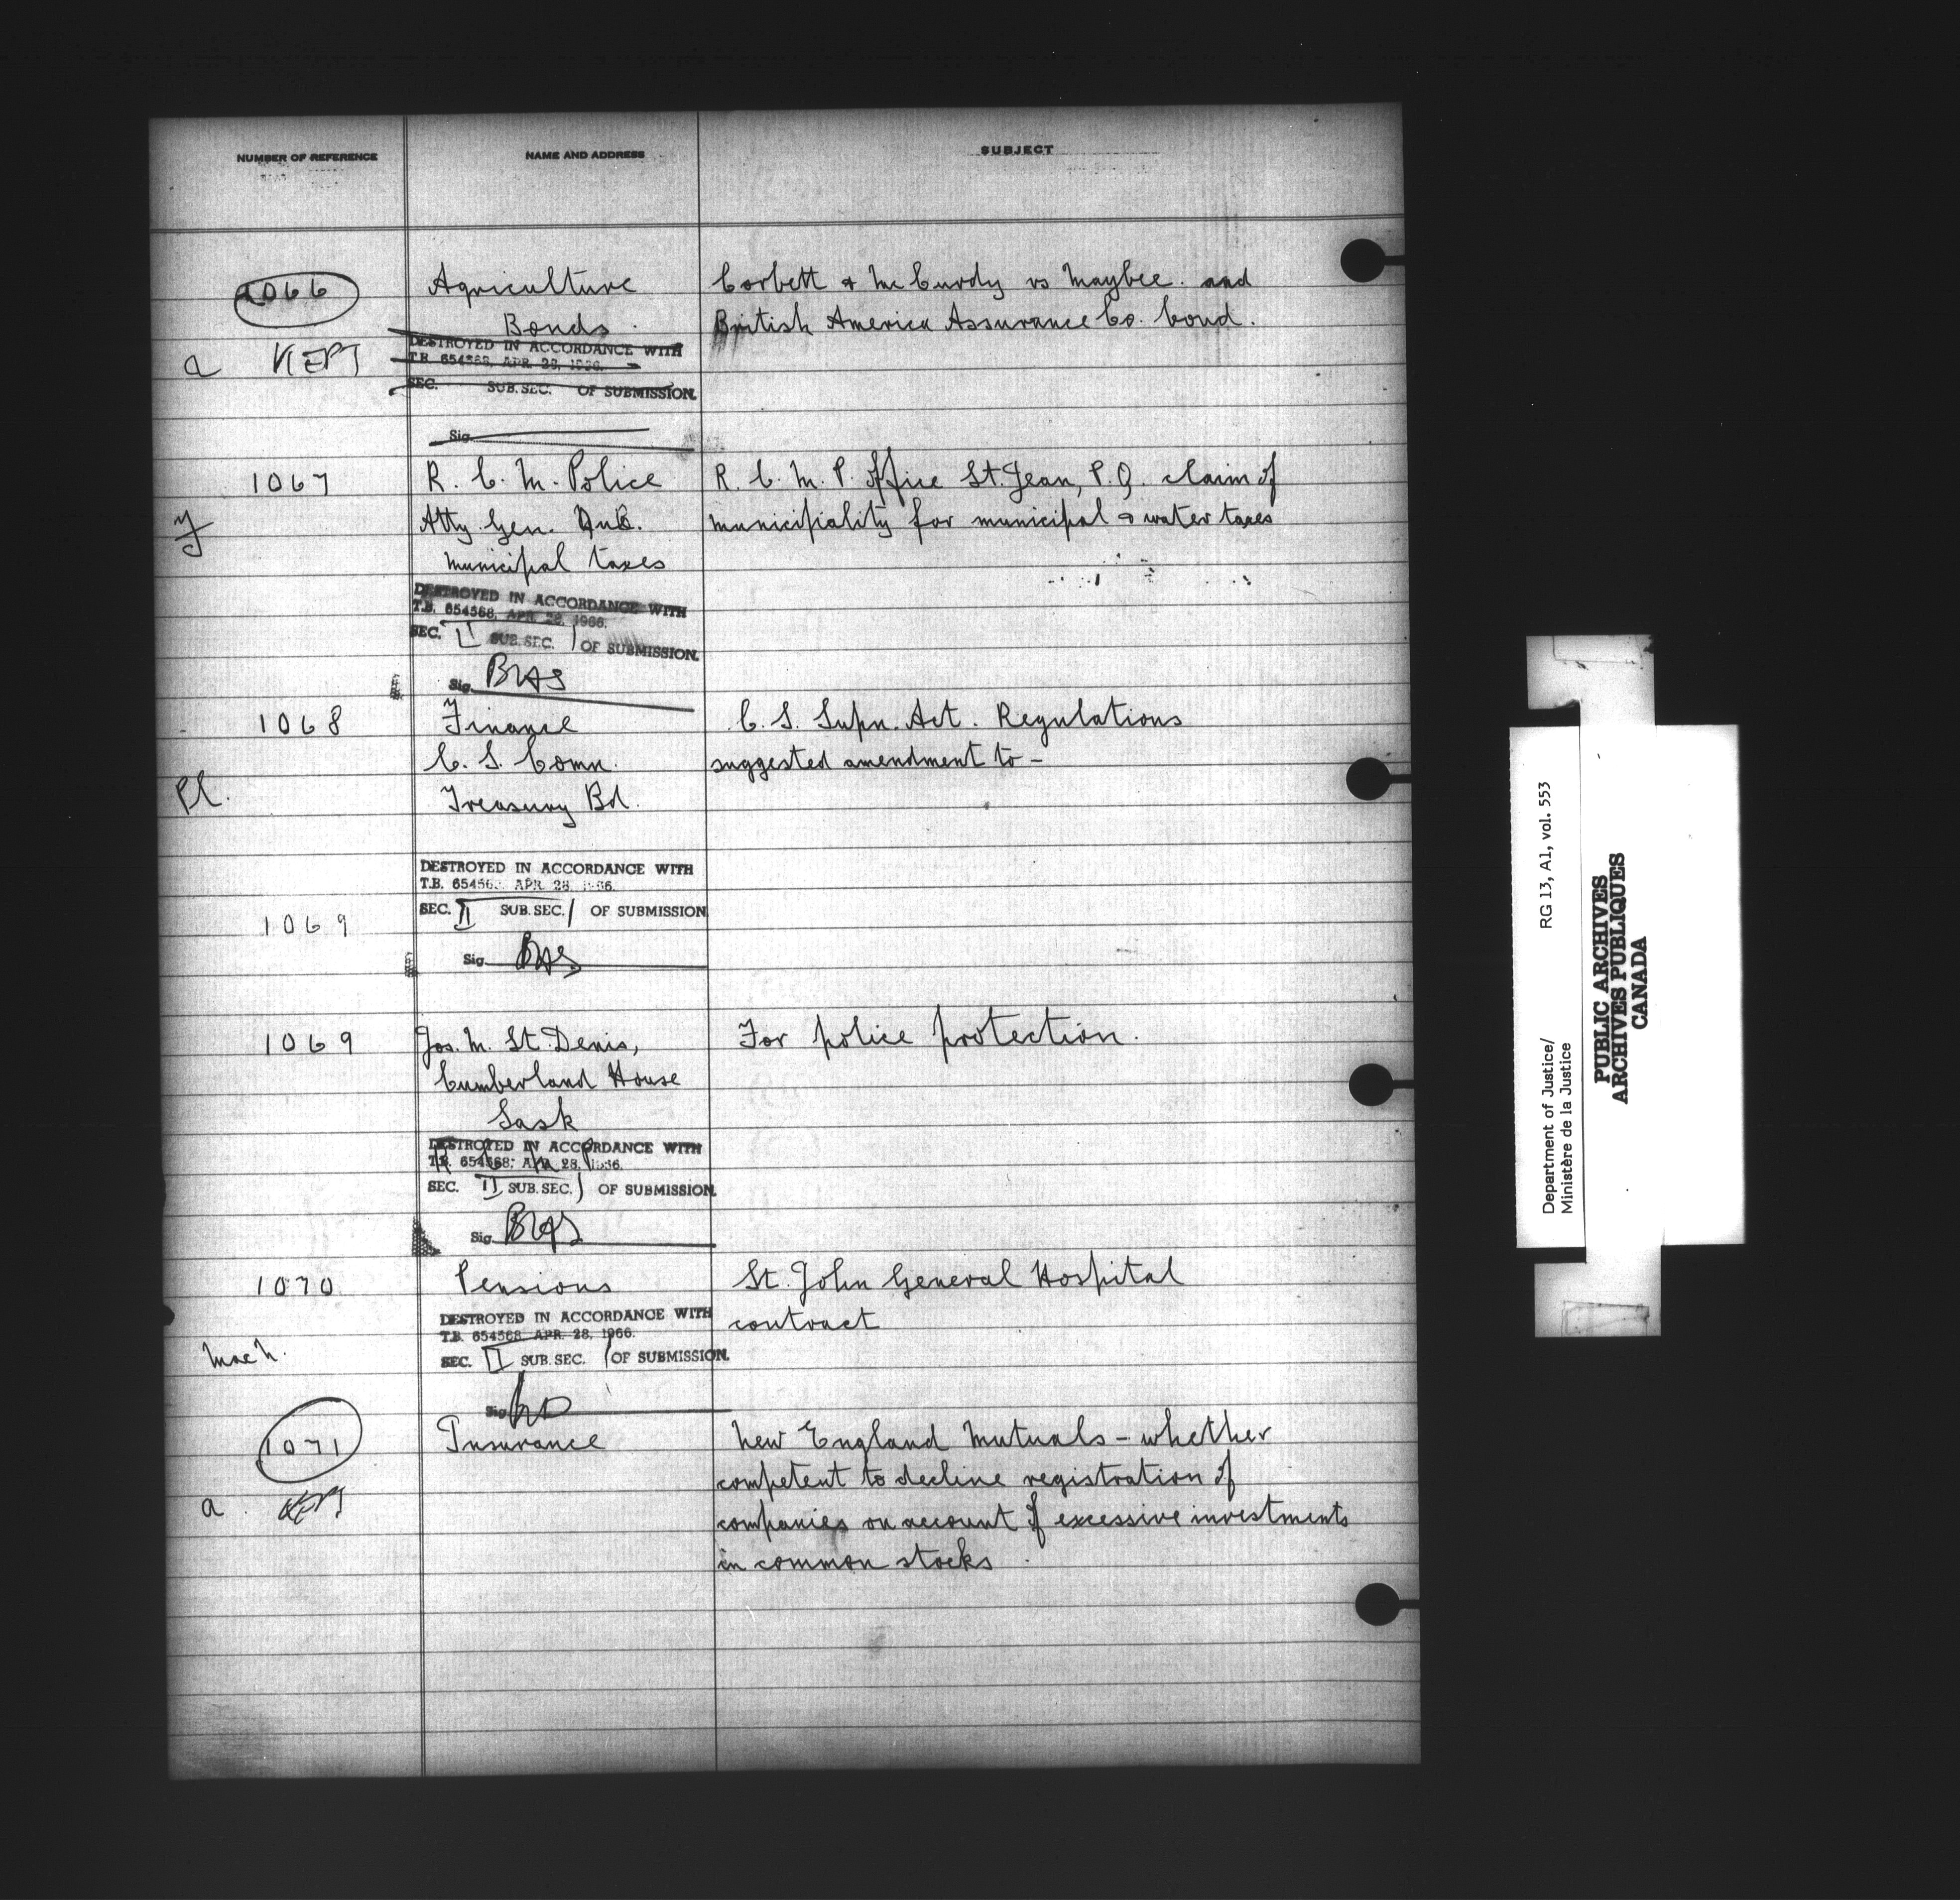 NUMBER OF REFERENCE NAME AND ADDRESS SUBJECT
1066 Agriculture Corbett & McCurdy vs Maybee. and
Bonds. British America Assurance Co. bond.
a KEPT
DESTROYED IN ACCORDANCE WITH
T.B. 654568, APR. 28, 1966.
SEC. SUB. SEC. OF SUBMISSION.
Sig.
1067 R. C. M. Police R. C. M. P. Office St. Jean, P.Q. claim of
Atty. Gen. Que. municipiality for municipal & water taxes
municipal taxes
DESTROYED IN ACCORDANCE WITH
T.B. 654568, APR. 28, 1966.
SEC. II SUB. SEC. 1 OF SUBMISSION.
Sig.
1068 Finance C. S. Supn. Act. Regulations
C. S. Comn. suggested amendment to -
Pl. Treasury Bd.
DESTROYED IN ACCORDANCE WITH
T.B. 654568, APR. 28, 1966.
SEC. II SUB. SEC. 1 OF SUBMISSION
1069
Sig.
1069 Jos. M. St. Denis, For police protection.
Cumberland House
Sask
R C M P
DESTROYED IN ACCORDANCE WITH
T.B. 654568; APR. 28, 1966.
SEC. II SUB. SEC. 1 OF SUBMISSION.
Sig.
1070 Pensions St. John General Hospital
contract
DESTROYED IN ACCORDANCE WITH
T.B. 654568, APR. 28, 1966.
Mach. SEC. II SUB. SEC. 1 OF SUBMISSION.
Sig.
1071 Insurance New England Mutuals - whether
competent to decline registration of
a. KEPT companies on account of excessive investments
in common stocks.
Department of Justice/ RG 13, A1, vol. 553
Ministère de la Justice
PUBLIC ARCHIVES
ARCHIVES PUBLIQUES
CANADA